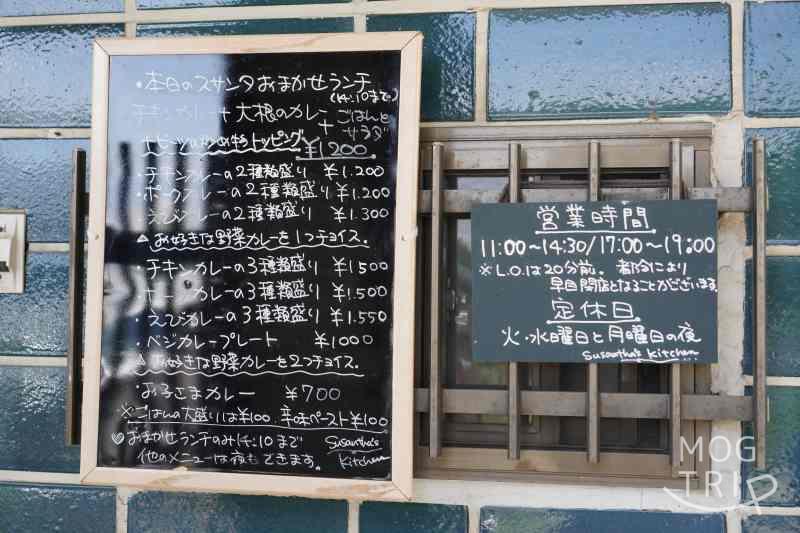 ・本日のスサンタおまかせランチ
(14:10まで)
チキンカレー+大根のカレー+ごはんと
サラダ
トッピング ¥1200
・チキンカレーの2種類盛り ¥1.200
・ポークカレーの2種類盛り ¥1.200
・えびカレーの2種類盛り ¥1.300
お好きな野菜カレーを1つチョイス。
・チキンカレーの3種類盛り ¥1500
カレーの3種類盛り ¥1.500
・えびカレーの3種類盛り ¥1.550
・ベジカレープレート ¥1000
お好きな野菜カレーを2つチョイス。
・お子さまカレー ¥700
※ごはんの大盛りは¥100、辛味ペースト¥100
♡おまかせランチのみ14:10まで
他のメニューは夜もできます。
Susantha's
Kitchen
営業時間
11:00~14:30/17:00~19:00
※L.O.は20分前。都合により
早目閉店となることがございます。
定休日
火・水曜日と月曜日の夜
Susantha's Kitchen
MOG
TRIP